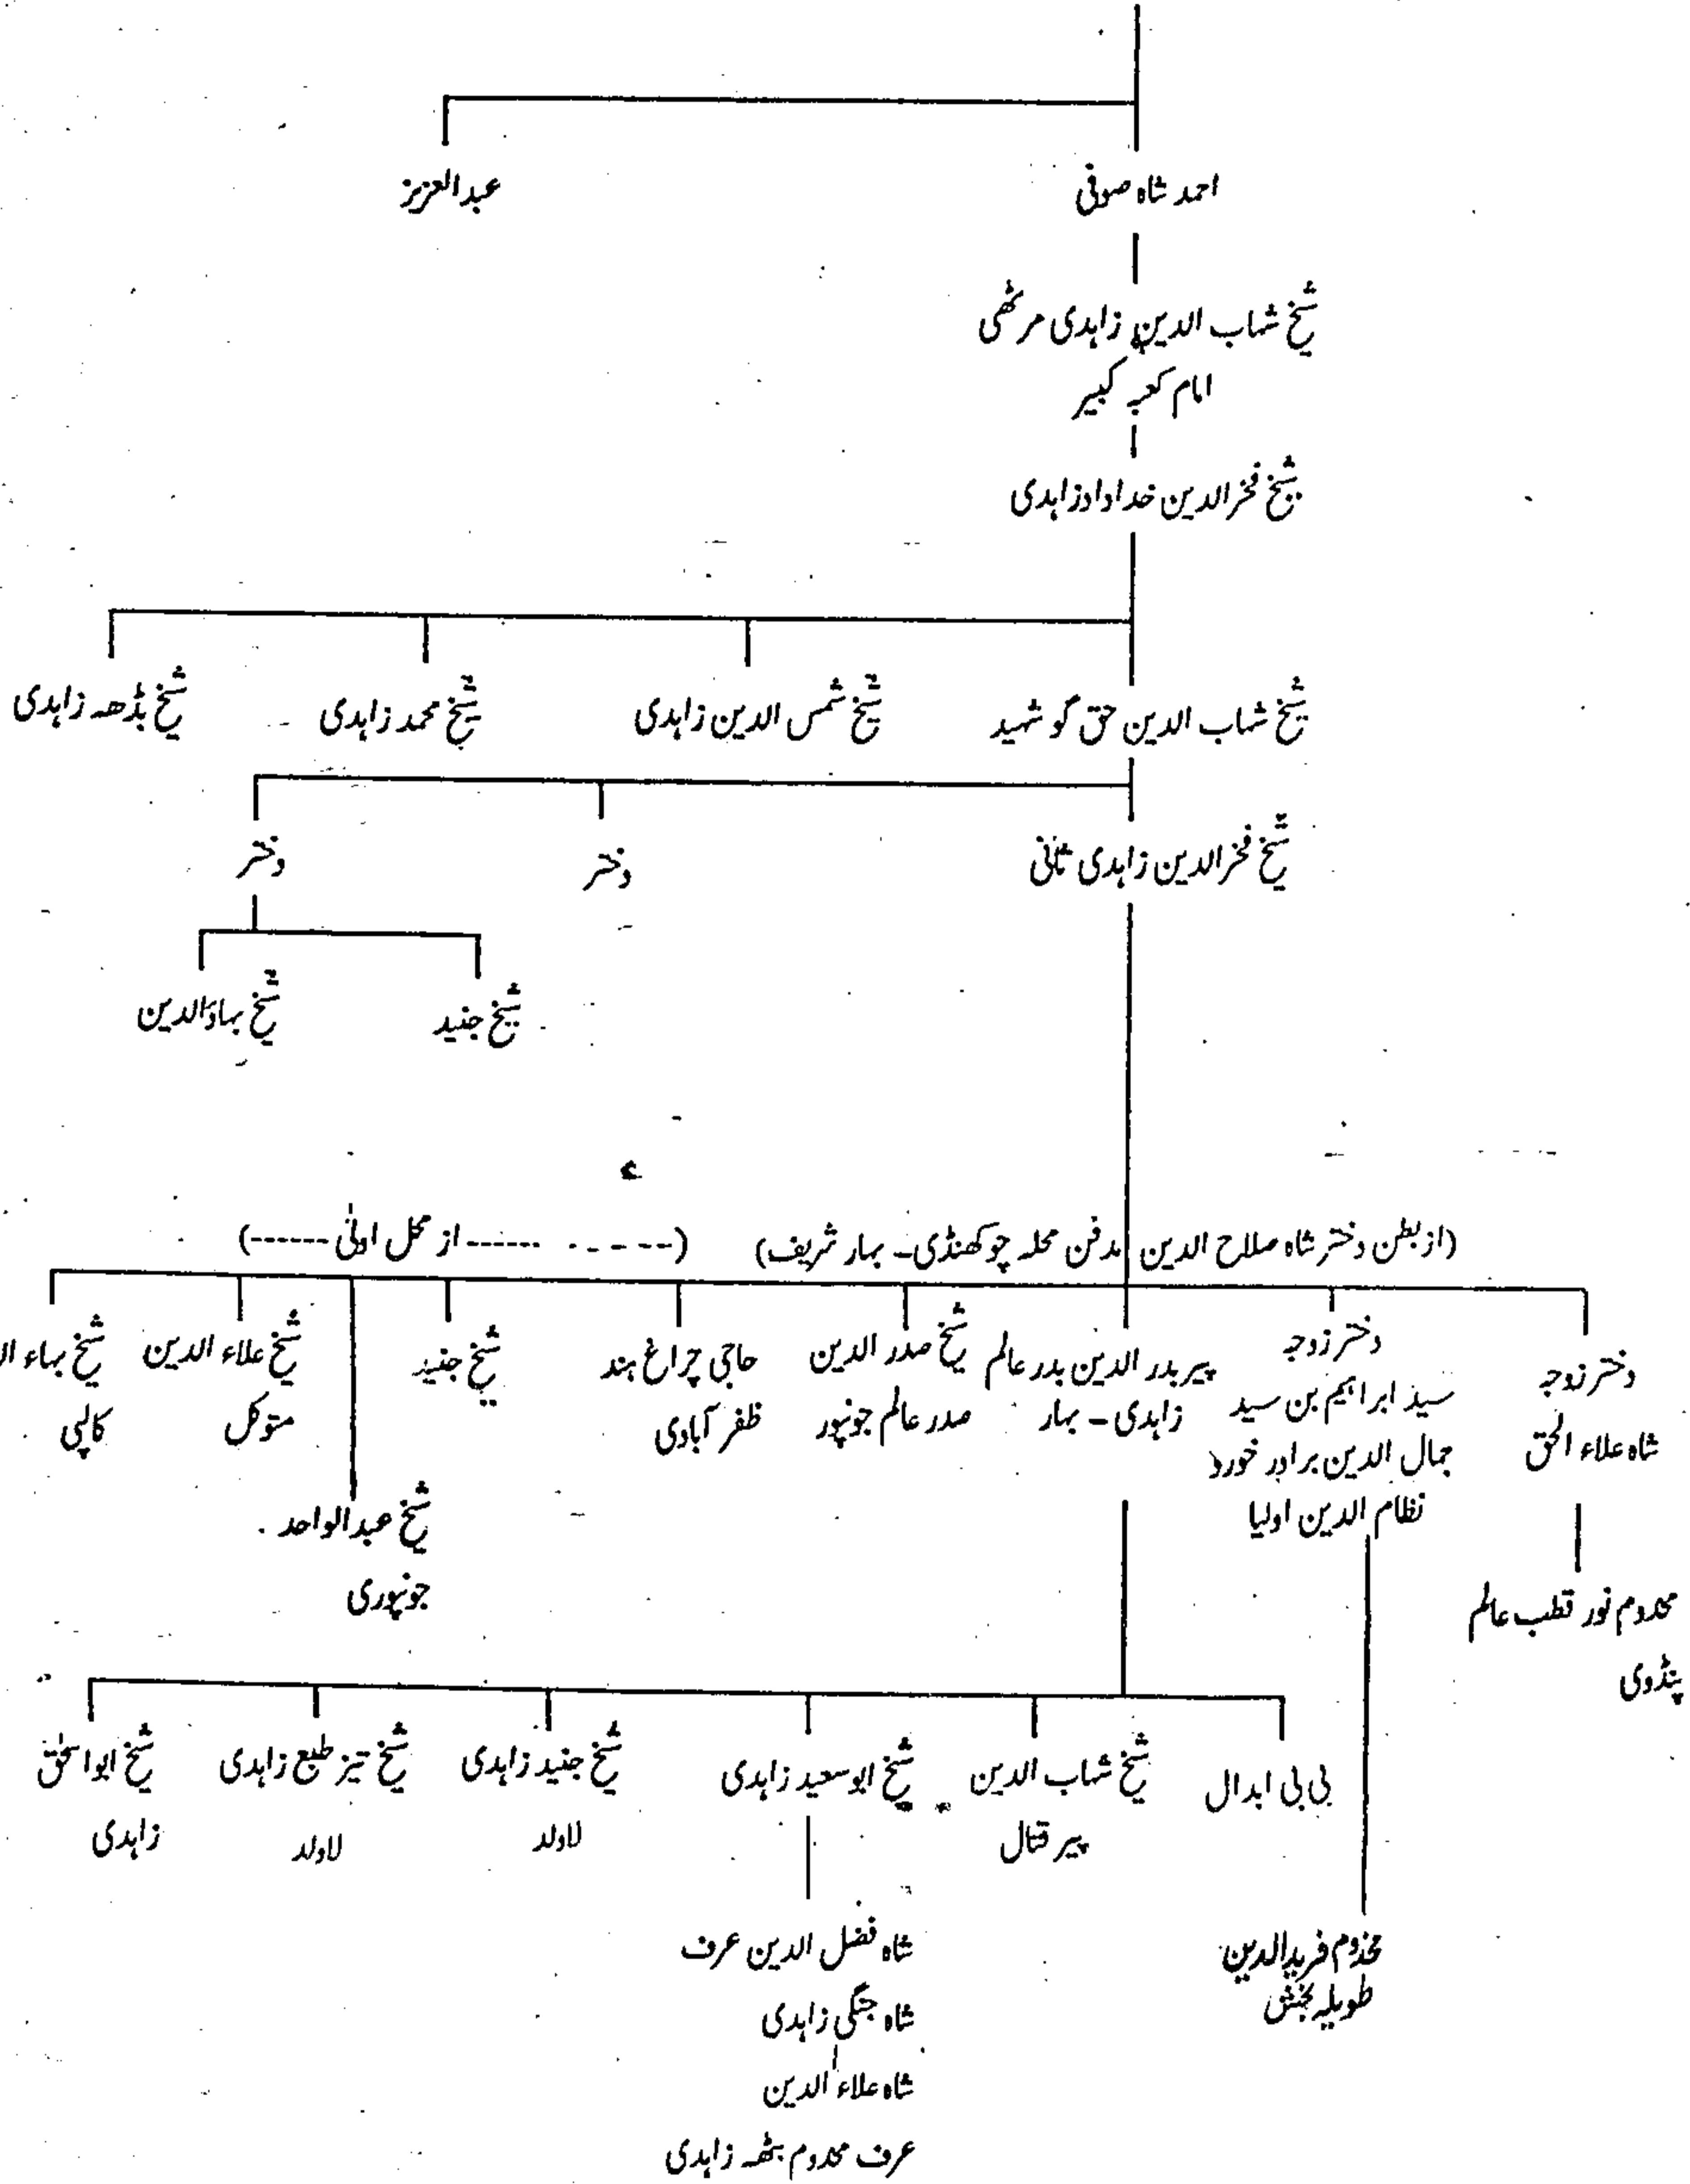 احمد شاہ صوفی
عبدالعزیز
شیخ شہاب الدین زاہدی مرٹھی
امام کعبہ کبیر
شیخ فخرالدین خداداد زاہدی
شیخ شہاب الدین حق گو شہید
شیخ شمس الدین زاہدی
شیخ محمد زاہدی
شیخ بڈھہ زاہدی
شیخ فخرالدین زاہدی ثانی
دختر
دختر
شیخ جنید
شیخ بہاؤالدین
(از بطن دختر شاہ صلاح الدین مدفن محلہ چوکھنڈی۔ بہار شریف)
(----- ------از محل اولیٰ ------)
دختر زوجہ
شاہ علاء الحق
دختر زوجہ
سید ابراہیم بن سید
جمال الدین برادر خورد
نظام الدین اولیا
پیر بدر الدین بدر عالم
زاہدی۔ بہار
شیخ صدر الدین
صدر عالم جونپور
حاجی چراغ ہند
ظفر آبادی
شیخ جنید
شیخ علاء الدین
متوکل
شیخ بہاء ال
کالپی
شیخ عبدالواحد
جونپوری
مخدوم نور قطب عالم
پنڈوی
بی بی ابدال
شیخ شہاب الدین
پیر قتال
شیخ ابو سعید زاہدی
شیخ جنید زاہدی
لاولد
شیخ تیز طبع زاہدی
لاولد
شیخ ابواسحٰق
زاہدی
مخدوم فریدالدین
طویلہ بخش
شاہ فضل الدین عرف
شاہ جنگی زاہدی
شاہ علاء الدین
عرف مخدوم بٹھہ زاہدی